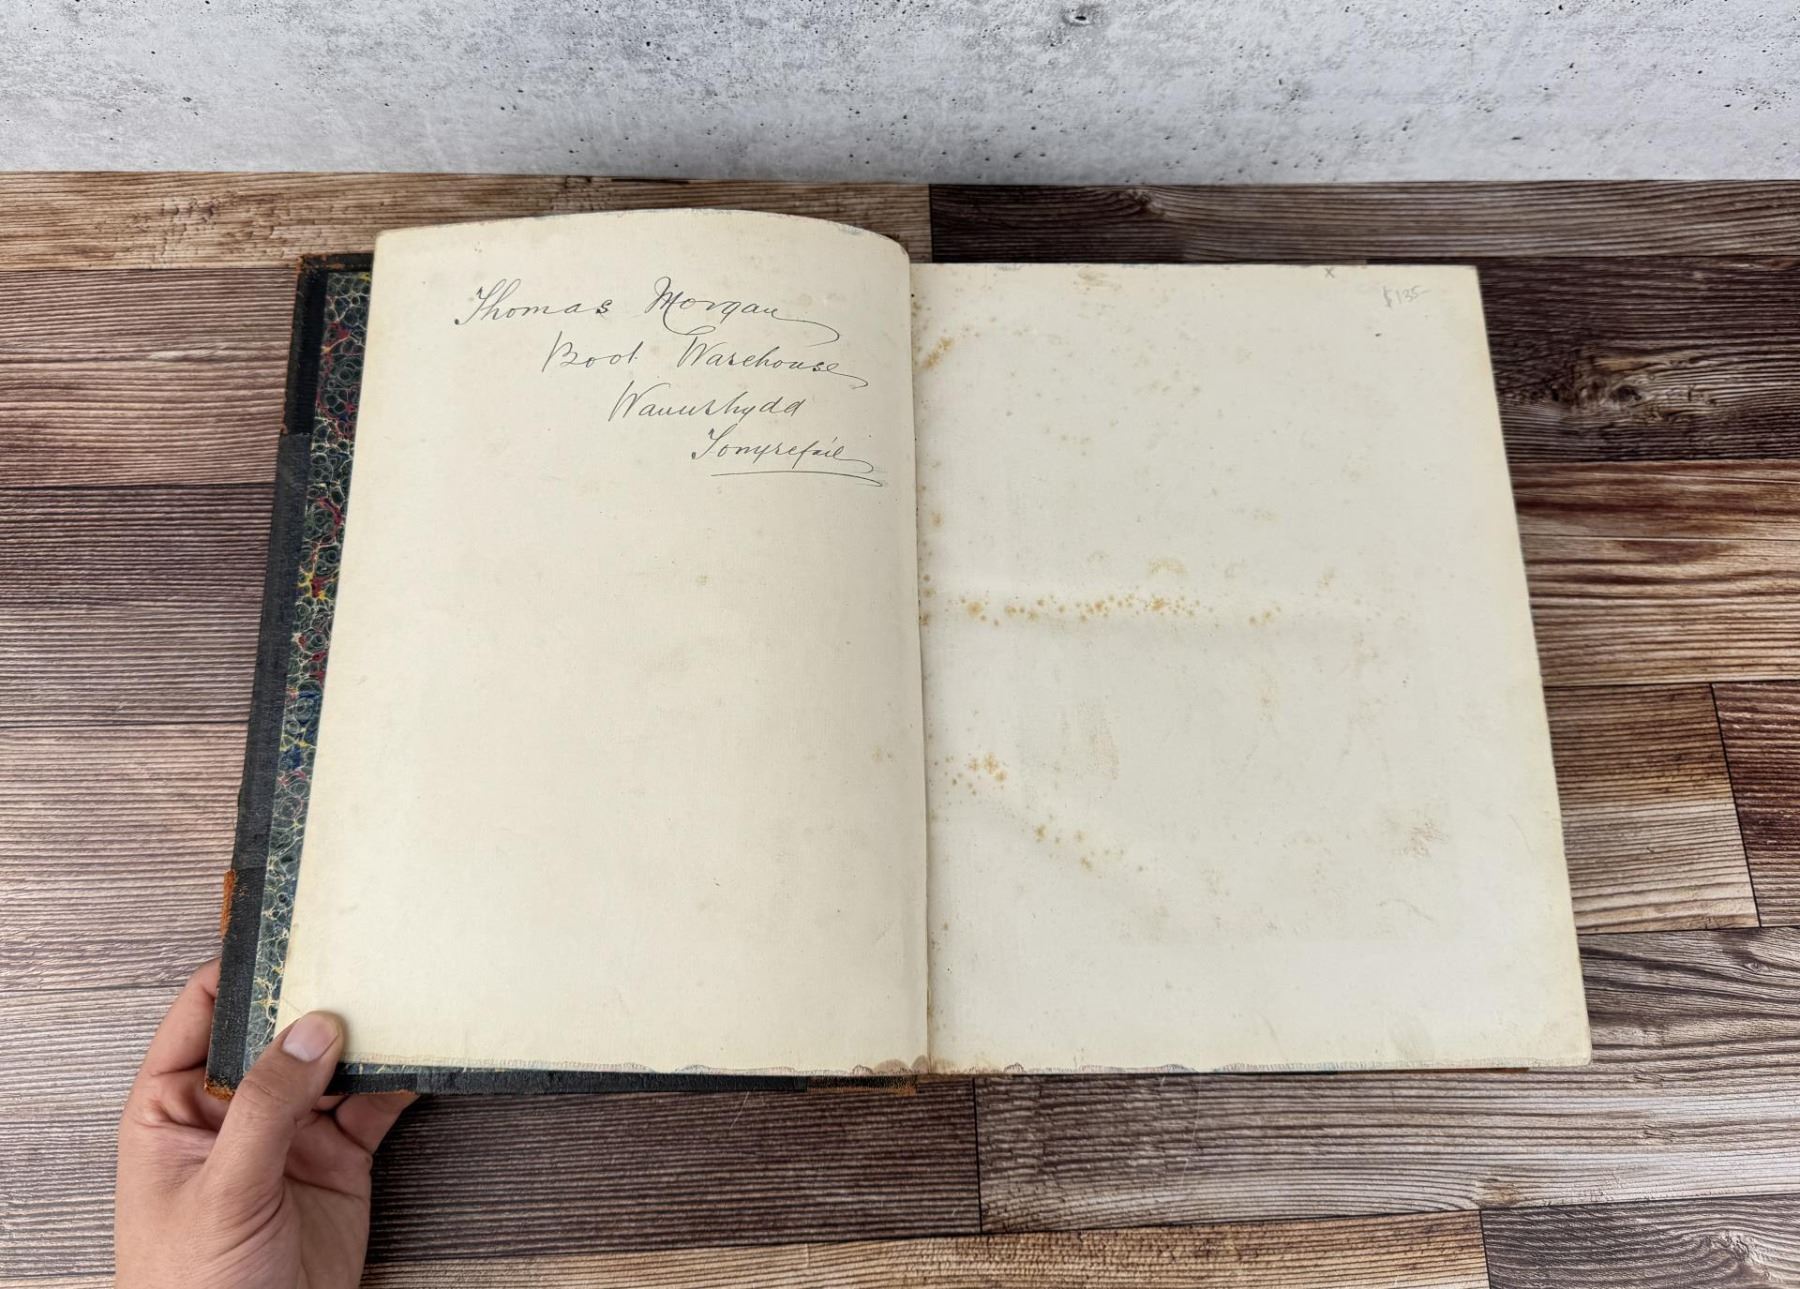 Thomas Morgan
Boot Warehouse
Waunrhydd
Tonyrefail
x
$135-